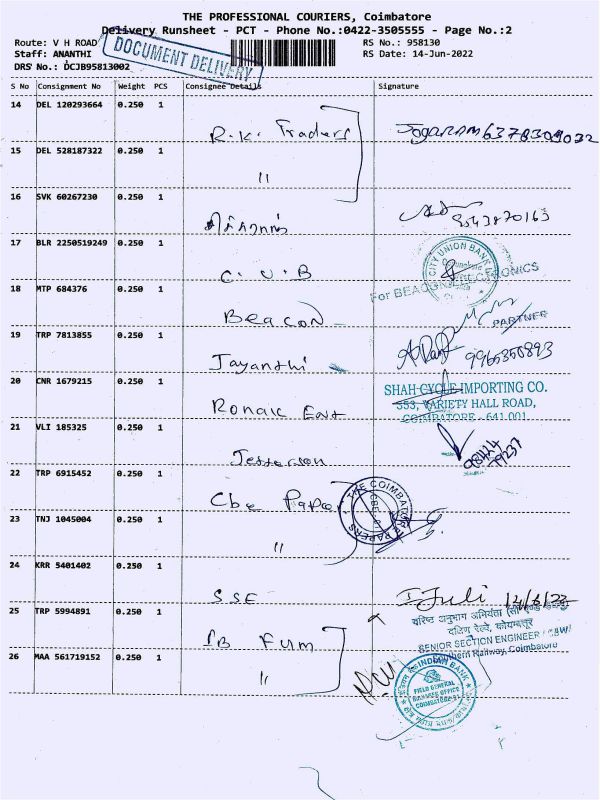 THE PROFESSIONAL COURIERS, Coimbatore
Delivery Runsheet - PCT - Phone No.:0422-3505555 - Page No.:2
Route: V H ROAD
RS No.: 958130
Staff: ANANTHI
RS Date: 14-Jun-2022
DRS No.: DCJB95813002
DOCUMENT DELIVERY
S No Consignment No Weight PCS Consignee Details Signature
14 DEL 120293664 0.250 1
R.K. Traders
15 DEL 528187322 0.250 1
"
16 SVK 60267230 0.250 1
17 BLR 2250519249 0.250 1
C.U.B
CITY UNION BANK
18 MTP 684376 0.250 1
Beacon
For BEACON ELECTRONICS
PARTNER
19 TRP 7813855 0.250 1
Jayanthi
9965350893
20 CNR 1679215 0.250 1
Ronak Ent
SHAH CYCLE IMPORTING CO.
353, VARIETY HALL ROAD,
COIMBATORE - 641 001.
21 VLI 185325 0.250 1
Jefferson
22 TRP 6915452 0.250 1
Cbe Paper
THE COIMBATORE PAPERS
23 TNJ 1045004 0.250 1
"
24 KRR 5401402 0.250 1
SSE
25 TRP 5994891 0.250 1
वरिष्ठ अनुभाग अभियंता
दक्षिण रेलवे, कोयम्बत्तूर
SENIOR SECTION ENGINEER
Southern Railway, Coimbatore
26 MAA 561719152 0.250 1
"
INDIAN BANK
FIELD GENERAL
MANAGER OFFICE